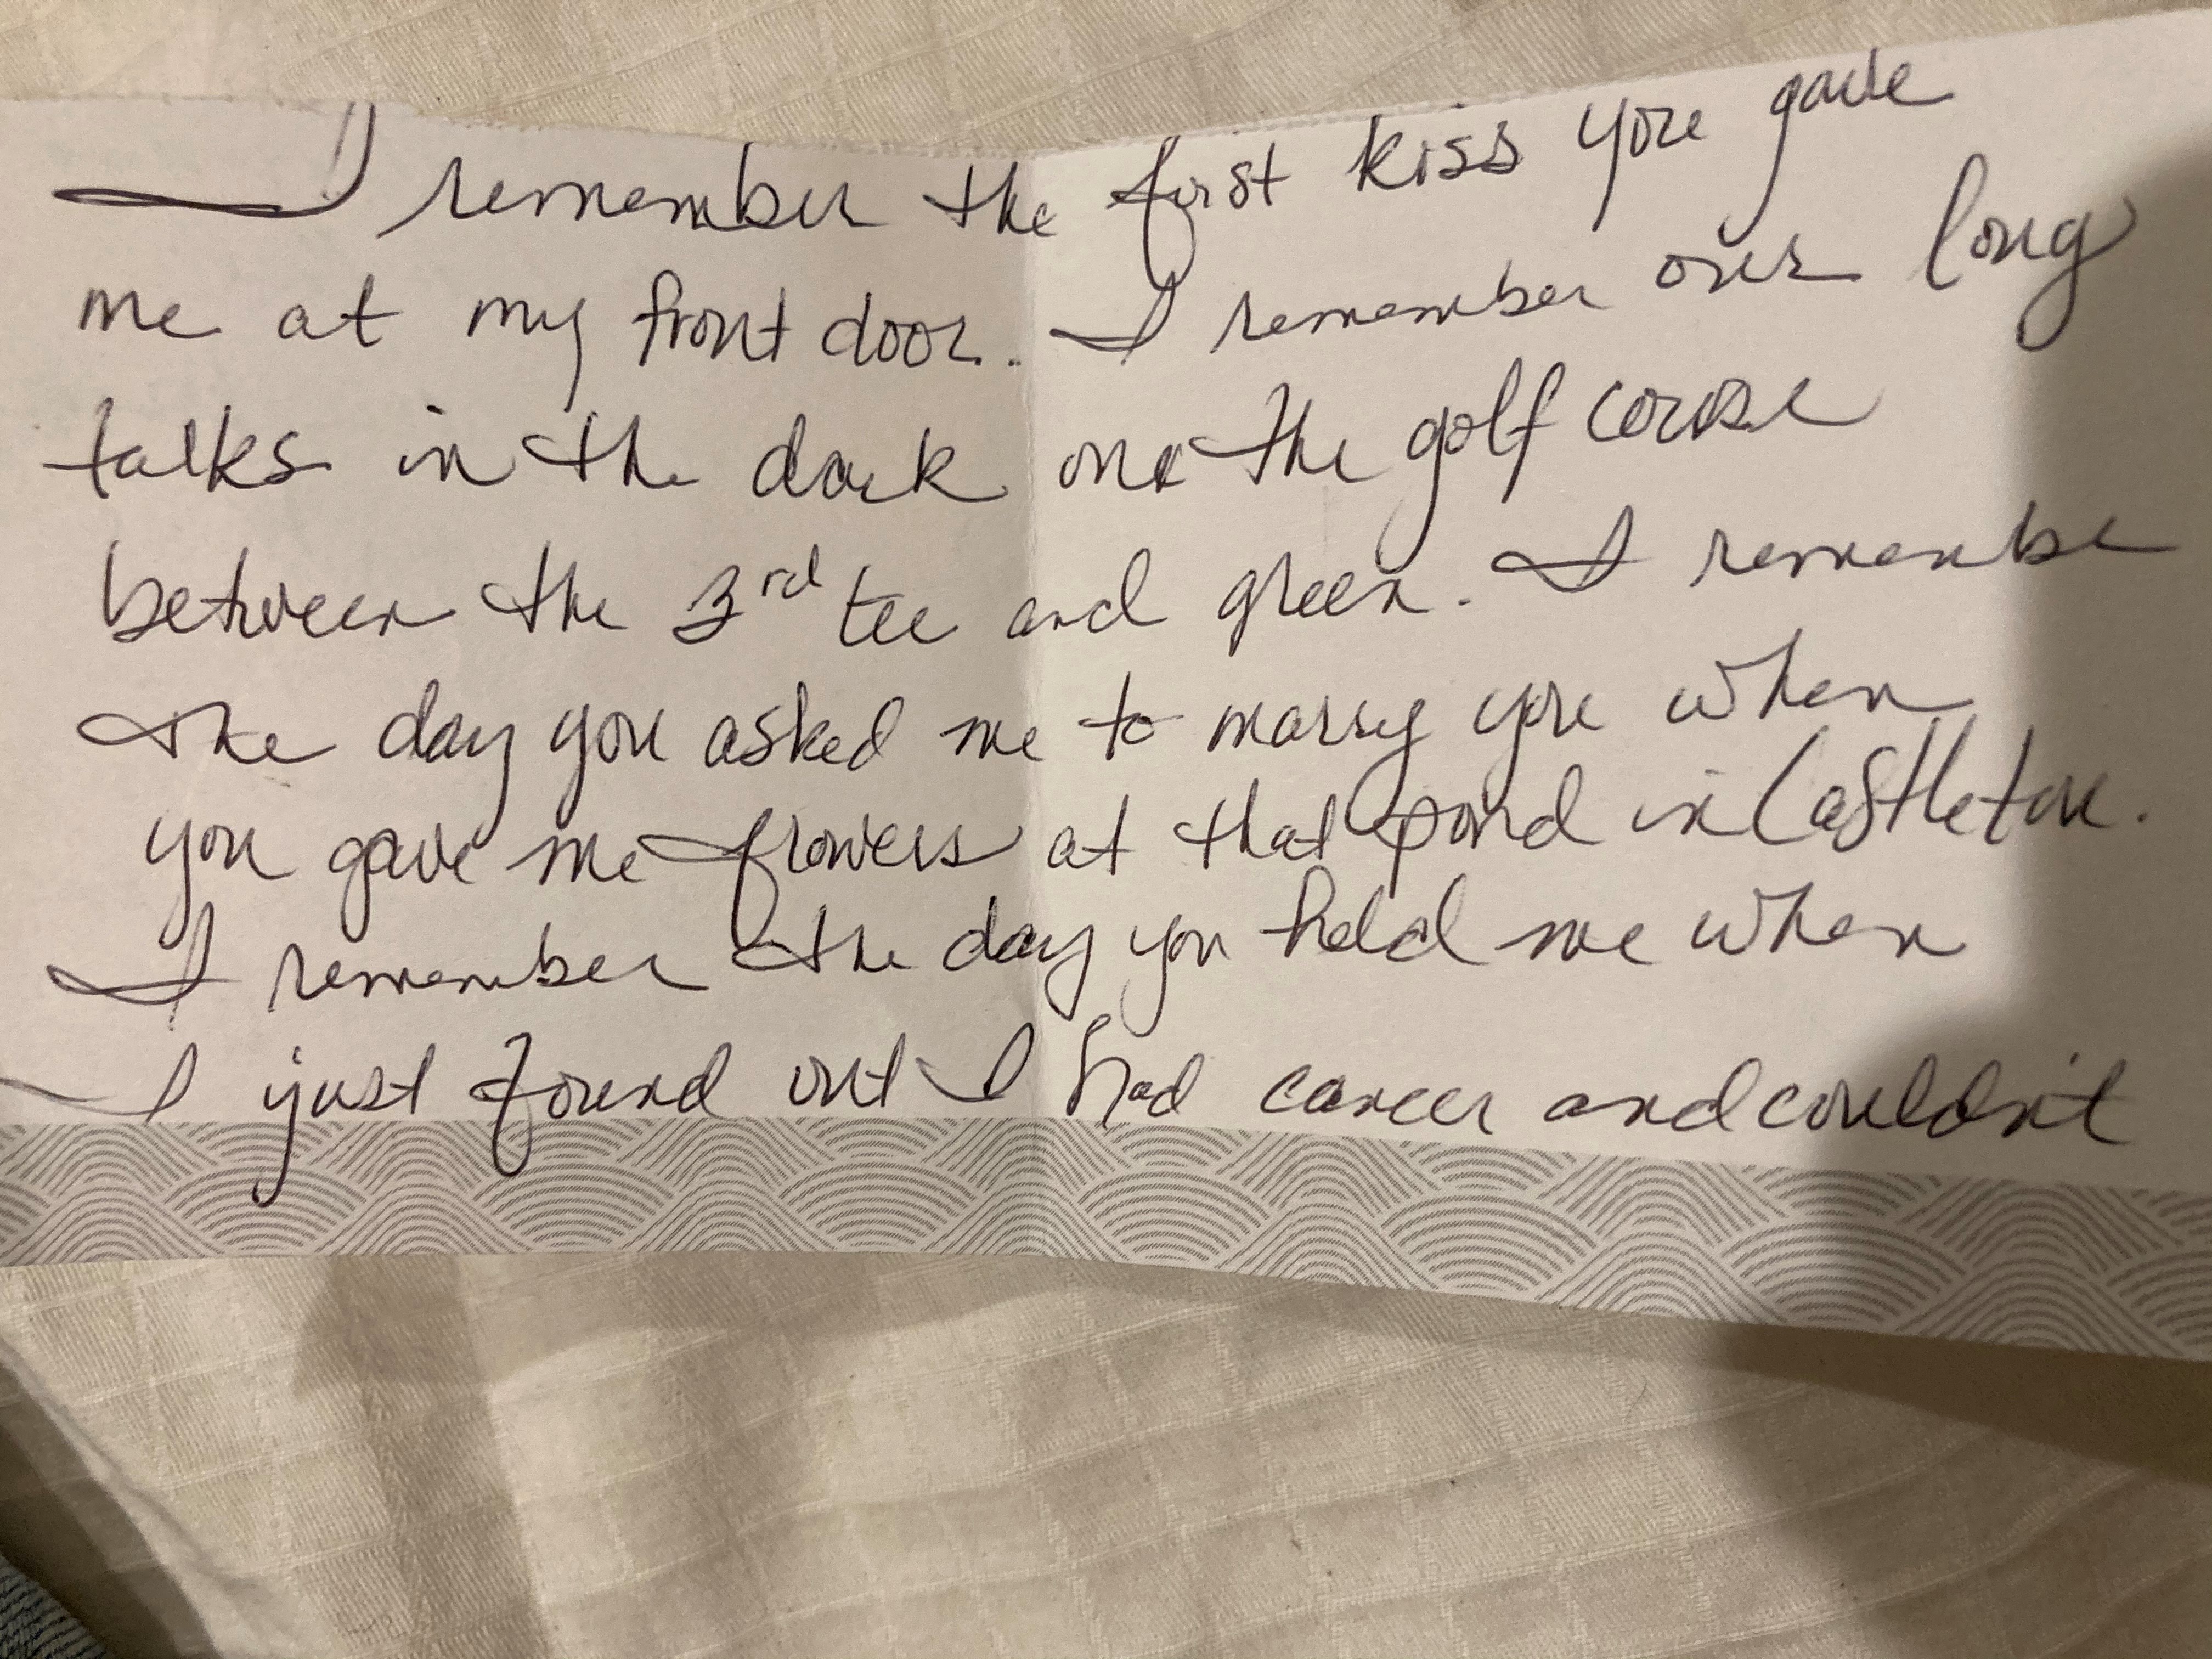 I remember the first kiss you gave
me at my front door. I remember our long
talks in the dark on the golf course
between the 3rd tee and green. I remembe
the day you asked me to marry you when
you gave me flowers at that pond in Castleton.
I remember the day you held me when
I just found out I had cancer and couldn't